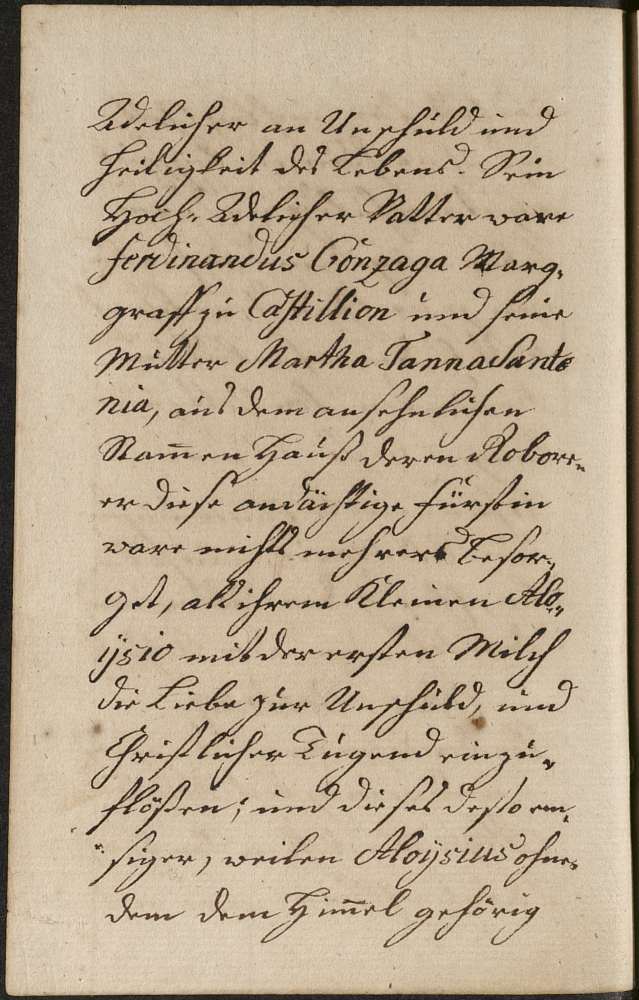 Adelicher an Unschuld und
heiligkeit des Lebens. Sein
Hoch-Adelicher Vatter ware
Ferdinandus Gonzaga Marg,
graff zu Castillion und seine
Mutter Martha Tanna Sante
nia, aus dem ansehnlichen
Stam̄en Hauß deren Robore,,
er diese andächtige Fürstin
ware nichts mehrers besor,,
get, als ihrem Kleinen Alo,,
ijsio mit der ersten Milch
die Liebe zur Unschuld, und
Christlicher Tugend einzu,
flößen; und dieses desto em,
siger, weilen Aloÿsius ohne,
dem dem Him̄el gehörig